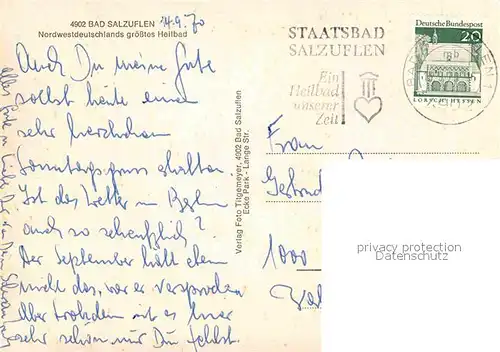 4902 BAD SALZUFLEN 14.9.70
Nordwestdeutschlands größtes Heilbad
Auch Du meine Gute
sollst heute einen
sehr herzlichen
Sonntagsgruss erhalten
Ist das Wetter in Berlin
auch so scheusslich?
Der September hält eben
nicht das, was er versprochen
Aber trotzdem ist es hier
sehr schön nur Du fehlst.
alles Gute u. Liebe Dir von Deiner
Verlag Foto Tilgemeyer, 4902 Bad Salzuflen
Ecke Park - Lange Str.
STAATSBAD
SALZUFLEN
Ein
Heilbad
unserer
Zeit
Deutsche Bundespost
20
LORSCH/HESSEN
Frau
1000
privacy protection
Datenschutz